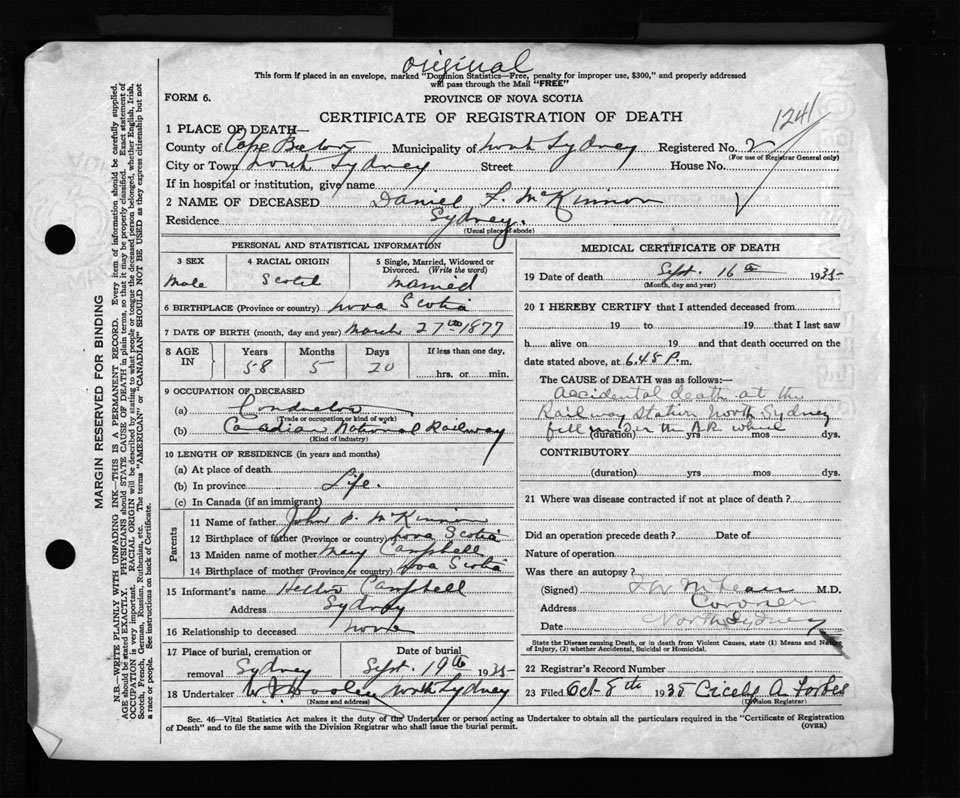 original
This form if placed in an envelope, marked "Dominion Statistics—Free, penalty for improper use, $300," and properly addressed
will pass through the Mail "FREE"
FORM 6.
PROVINCE OF NOVA SCOTIA
CERTIFICATE OF REGISTRATION OF DEATH
1241
1 PLACE OF DEATH—
County of Cape Breton Municipality of North Sydney Registered No. 2
(For use of Registrar General only)
City or Town North Sydney Street House No.
If in hospital or institution, give name
2 NAME OF DECEASED Daniel F. McKinnon
Residence Sydney.
(Usual place of abode)
PERSONAL AND STATISTICAL INFORMATION
3 SEX
Male
4 RACIAL ORIGIN
Scotch
5 Single, Married, Widowed or
Divorced. (Write the word)
Married
6 BIRTHPLACE (Province or country) Nova Scotia
7 DATE OF BIRTH (month, day and year) March 27th 1877
8 AGE IN Years Months Days If less than one day,
58 5 20 hrs. or min.
9 OCCUPATION OF DECEASED
(a) Conductor
(Trade or occupation or kind of work)
(b) Canadian National Railway
(Kind of industry)
10 LENGTH OF RESIDENCE (in years and months)
(a) At place of death
(b) In province Life.
(c) In Canada (if an immigrant)
Parents
11 Name of father John D. McKinnon
12 Birthplace of father (Province or country) Nova Scotia
13 Maiden name of mother Mary Campbell
14 Birthplace of mother (Province or country) Nova Scotia
15 Informant's name Hector Campbell
Address Sydney
16 Relationship to deceased none
17 Place of burial, cremation or Date of burial
removal Sydney Sept. 19th 1935
18 Undertaker W. J. Dooley North Sydney
(Name and address)
MEDICAL CERTIFICATE OF DEATH
19 Date of death Sept. 16th 1935
(Month, day and year)
20 I HEREBY CERTIFY that I attended deceased from
19 to 19 that I last saw
h alive on 19 and that death occurred on the
date stated above, at 6.45 P.m.
The CAUSE OF DEATH was as follows:—
accidental death at the
Railway station North Sydney
fell under the wheel
(duration) yrs mos dys.
CONTRIBUTORY
(duration) yrs mos dys.
21 Where was disease contracted if not at place of death?
Did an operation precede death? Date of
Nature of operation
Was there an autopsy?
(Signed) McLean M.D.
Address Coroner
Date North Sydney
State the Disease causing Death, or in death from Violent Causes, state (1) Means and Nature
of Injury, (2) whether Accidental, Suicidal or Homicidal.
22 Registrar's Record Number
23 Filed Oct. 8th 1935 Cicely A. Forbes
(Division Registrar)
Sec. 46—Vital Statistics Act makes it the duty of the Undertaker or person acting as Undertaker to obtain all the particulars required in the "Certificate of Registration
of Death" and to file the same with the Division Registrar who shall issue the burial permit.
(OVER)
MARGIN RESERVED FOR BINDING
N.B. WRITE PLAINLY WITH UNFADING INK—THIS IS A PERMANENT RECORD. Every item of information should be carefully supplied.
AGE should be stated EXACTLY. PHYSICIANS should STATE CAUSE OF DEATH in plain terms, so that it may be properly classified. Exact statement of
OCCUPATION is very important. RACIAL ORIGIN will be described by stating to what people or tongue the deceased person belonged, whether English, Irish,
Scotch, French, German, Russian, Ruthenian, etc. The terms "AMERICAN" or "CANADIAN" SHOULD NOT BE USED as they express citizenship but not
a race or people. See instructions on back of Certificate.